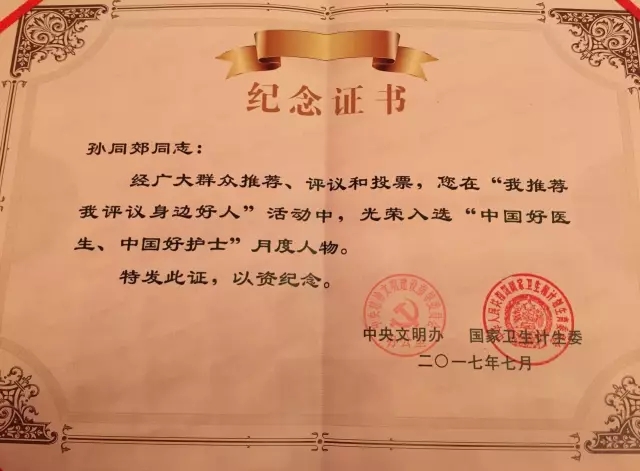 纪念证书
孙同郊同志：
经广大群众推荐、评议和投票，您在“我推荐
我评议身边好人”活动中，光荣入选“中国好医
生、中国好护士”月度人物。
特发此证，以资纪念。
中央文明办 国家卫生计生委
二〇一七年七月